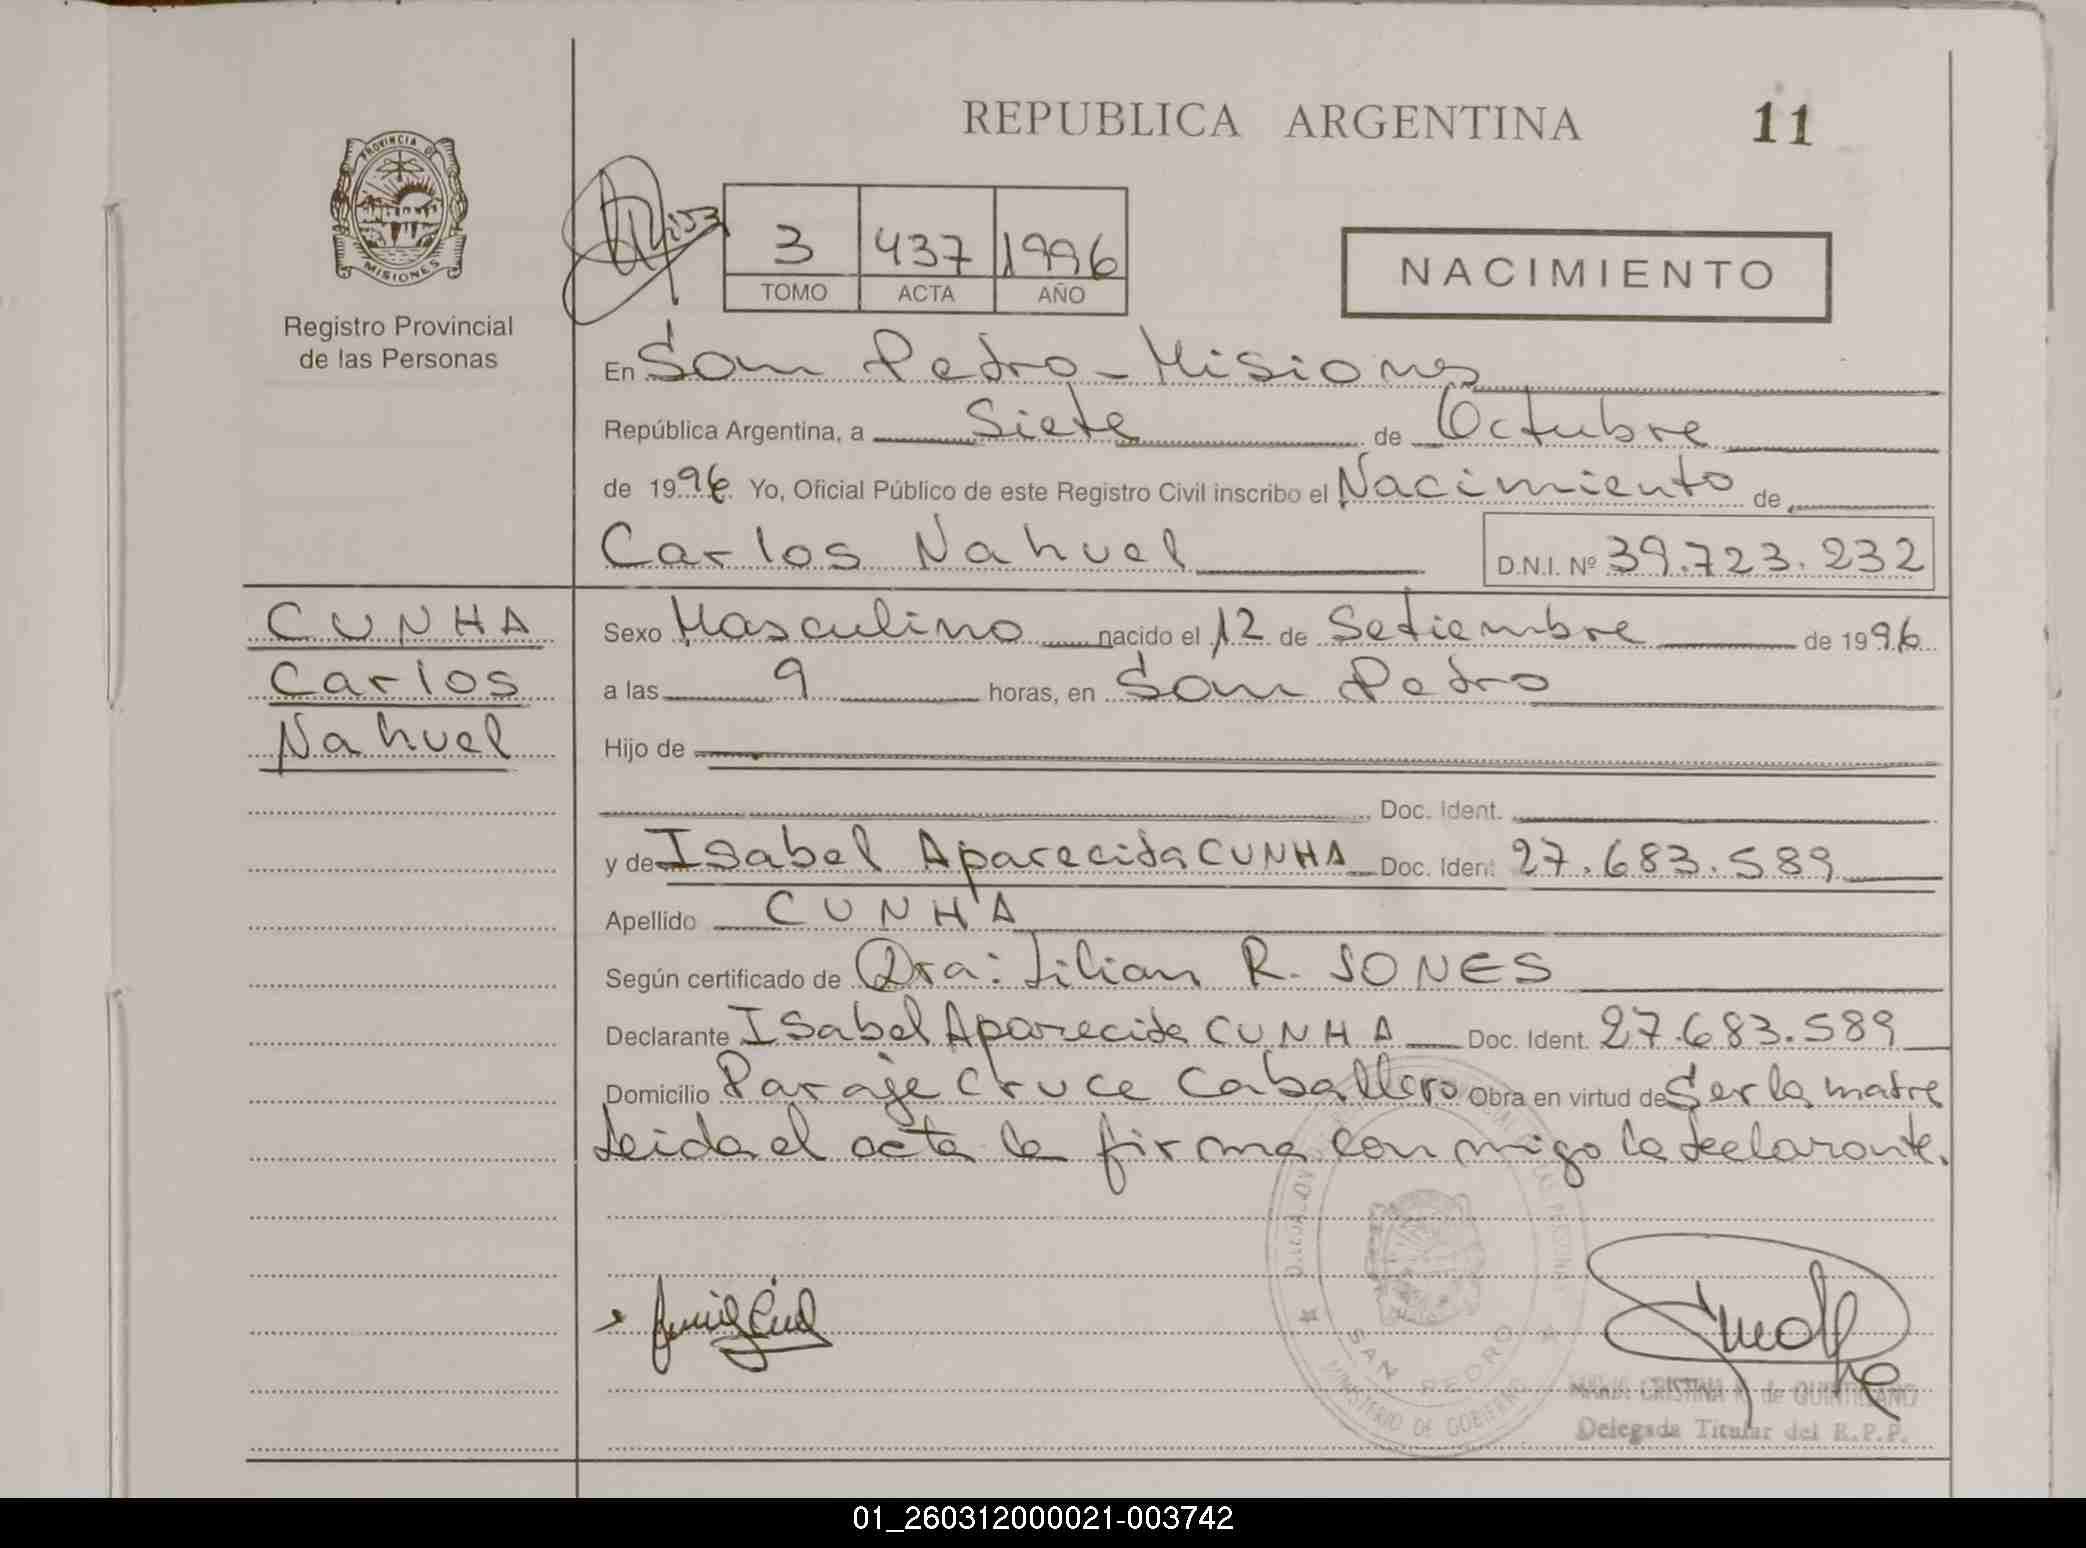 REPUBLICA ARGENTINA
11
PROVINCIA DE
MISIONES
Registro Provincial
de las Personas
3 437 1996
TOMO ACTA AÑO
NACIMIENTO
En San Pedro - Misiones
República Argentina, a Siete de Octubre
de 1996 Yo, Oficial Público de este Registro Civil inscribo el Nacimiento de
Carlos Nahuel D.N.I. Nº 39.723.232
CUNHA
Carlos
Nahuel
Sexo Masculino nacido el 12 de Setiembre de 1996
a las 9 horas, en San Pedro
Hijo de
Doc. Ident.
y de Isabel Aparecida CUNHA Doc. Ident. 27.683.589
Apellido CUNHA
Según certificado de Dra: Lilian R. JONES
Declarante Isabel Aparecida CUNHA Doc. Ident. 27.683.589
Domicilio Paraje Cruce Caballero Obra en virtud de Ser la madre
Leida el acta la firma con migo la declarante.
SAN PEDRO
MINISTERIO DE GOBIERNO
MARIA CRISTINA de QUINTILIANO
Delegada Titular del R.P.P.
01_260312000021-003742